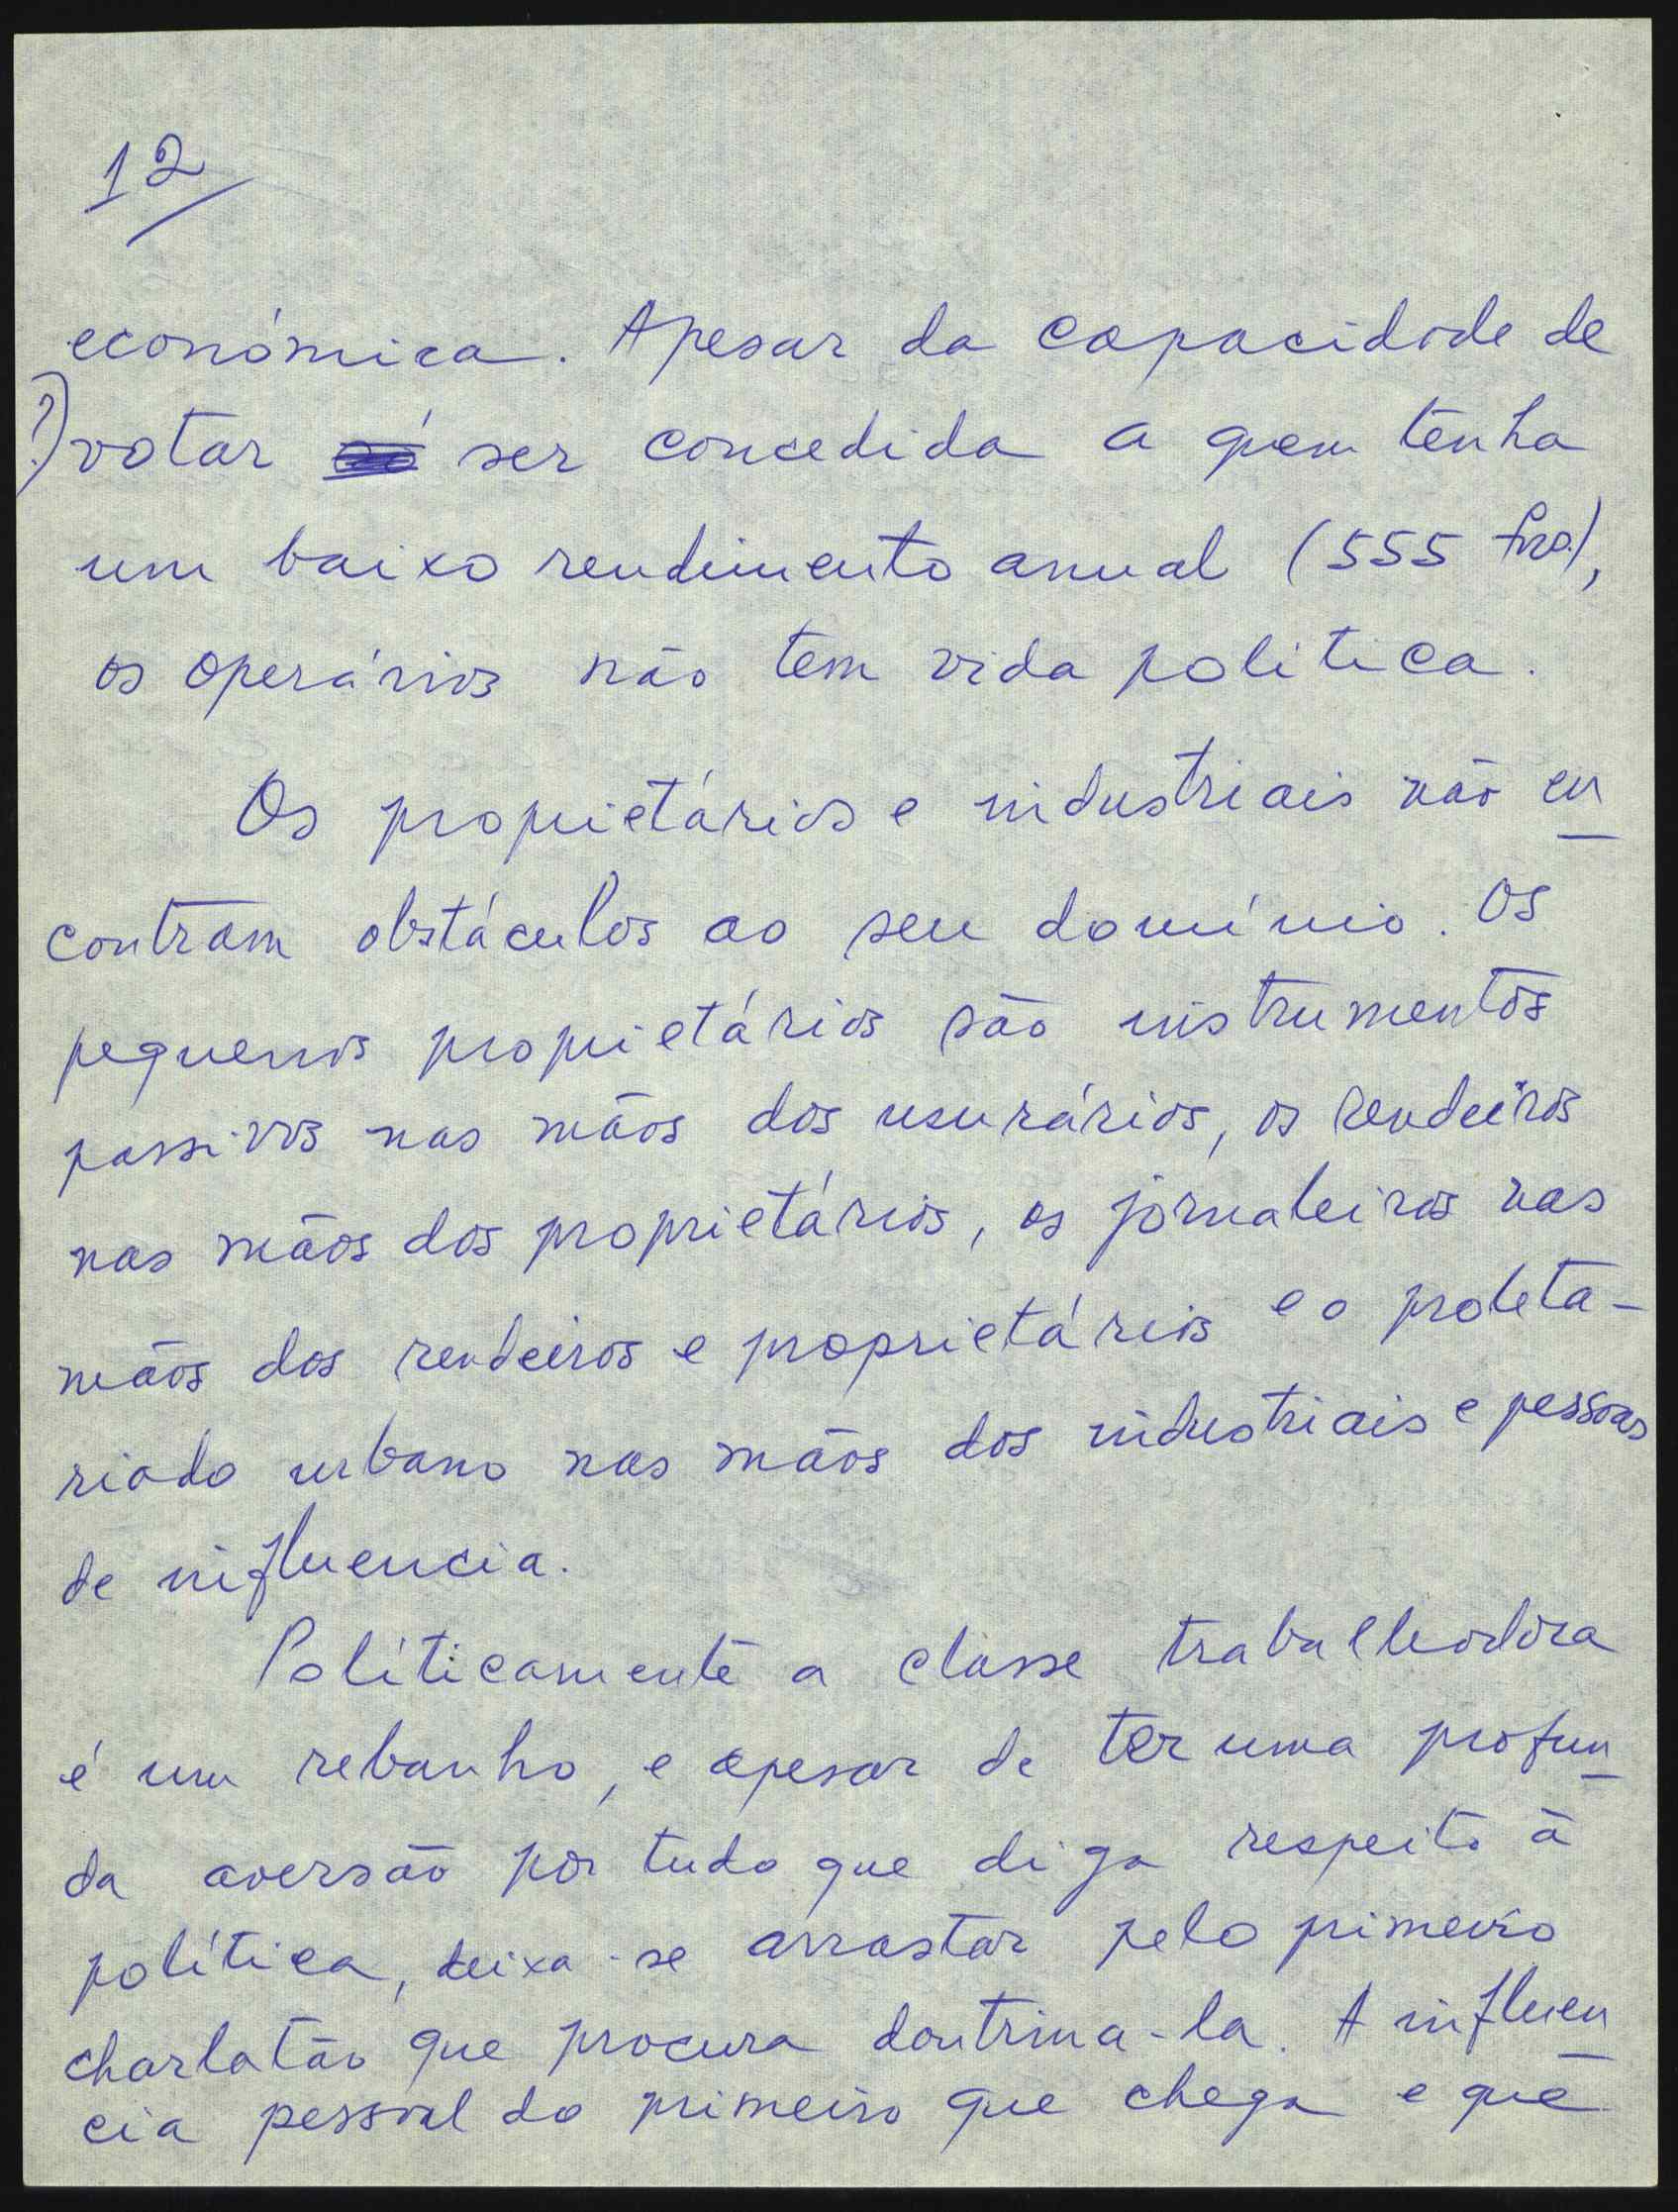 12
económica. Apesar da capacidade de
?) votar só ser concedida a quem tenha
um baixo rendimento anual (555 frs.),
os operários não tem vida politica.
Os proprietários e industriais não en
contram obstáculos ao seu domínio. Os
pequenos proprietários são instrumentos
passivos nas mãos dos usurários, os rendeiros
nas mãos dos proprietários, os jornaleiros nas
mãos dos rendeiros e proprietários e o proleta-
riado urbano nas mãos dos industriais e pessoas
de influencia.
Políticamente a classe trabalhadora
é um rebanho, e apesar de ter uma profun
da aversão por tudo que diga respeito à
política, deixa-se arrastar pelo primeiro
charlatão que procura doutrina-la. A influen
cia pessoal do primeiro que chega e que